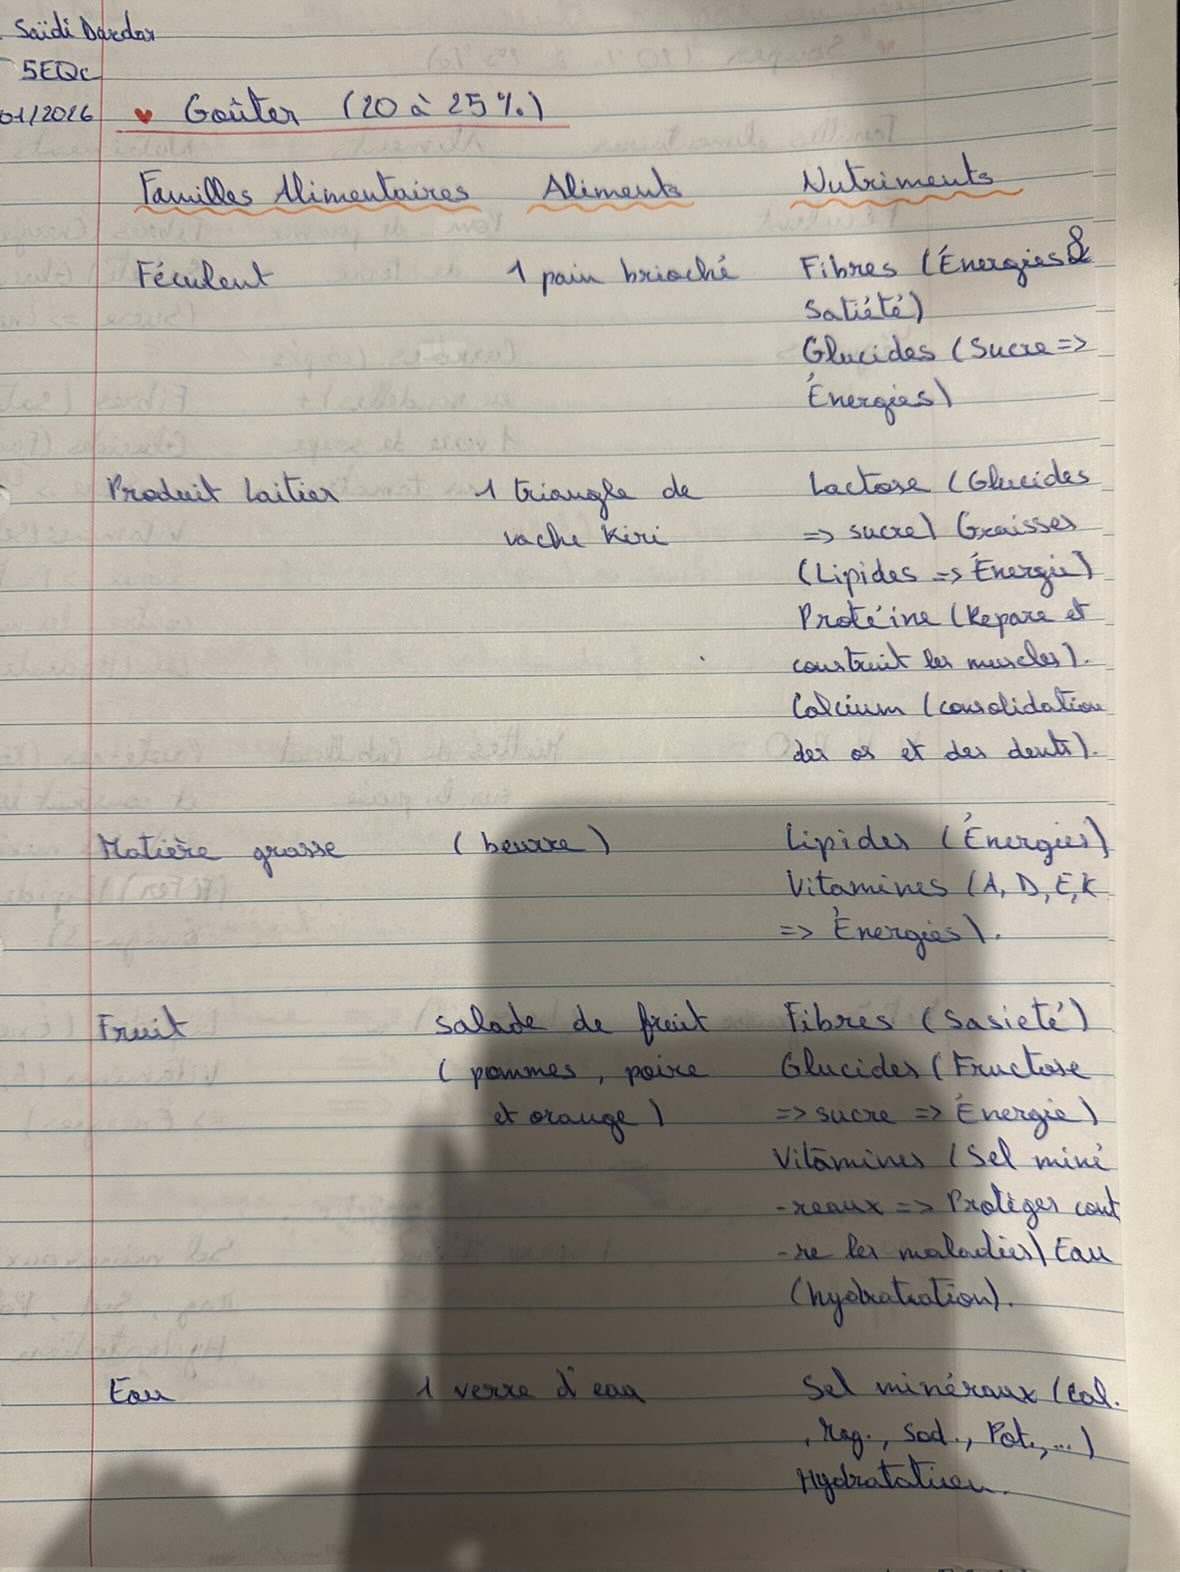 Saïdi Dardar
5EQc
01/2026 ♥ Goûter (20 à 25%)
Familles Alimentaires Aliments Nutriments
Féculent 1 pain brioché Fibres (Énergies &
Satiété)
Glucides (Sucre =>
Énergies)
Produit Laitier 1 triangle de Lactose (Glucides
vache Kiri => sucre) Graisses
(Lipides => Énergie)
Protéine (Repare et
construit les muscles).
Calcium (consolidation
des os et des dents).
Matière grasse (beurre) Lipides (Énergies)
Vitamines (A, D, E, K
=> Énergies).
Fruit salade de fruit Fibres (Sasieté)
(pommes, poire Glucides (Fructose
et orange) => sucre => Énergie)
Vitamines (Sel miné
-reaux => Protéger cont
-re les maladies) Eau
(hydratation).
Eau 1 verre d'eau Sel minéraux (Cal.
, Mag., Sod., Pot., ...)
Hydratation.